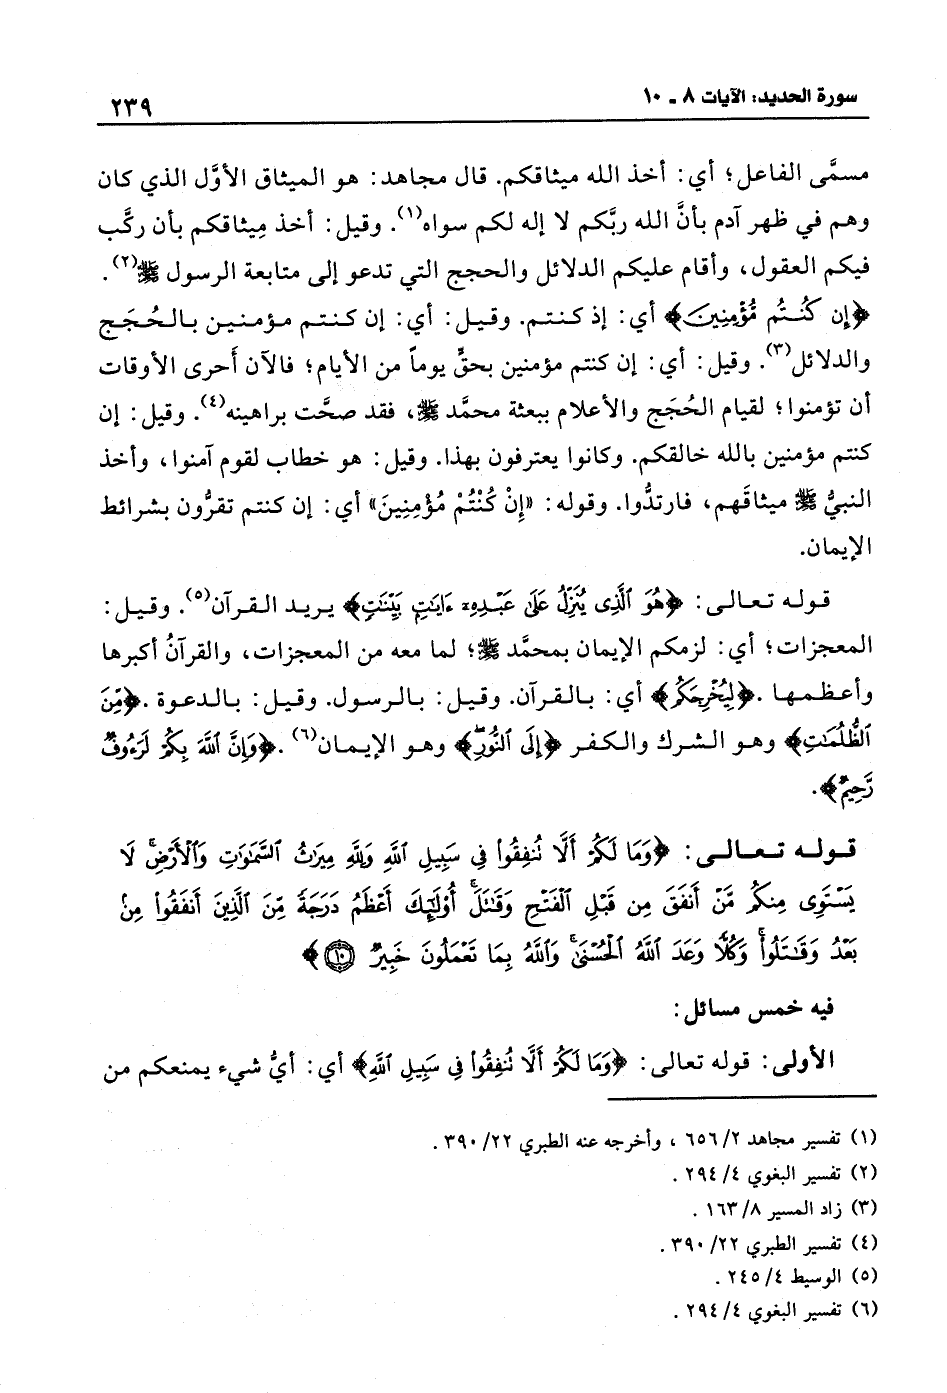 سورة الحديد: الآيات ٨ - ١٠
٢٣٩
مسمَّى الفاعل؛ أي: أخذ الله ميثاقكم. قال مجاهد: هو الميثاق الأوَّل الذي كان
وهم في ظهر آدم بأنَّ الله ربَّكم لا إله لكم سواه(١). وقيل: أخذ مِيثاقكم بأن ركَّب
فيكم العقول، وأقام عليكم الدلائل والحجج التي تدعو إلى متابعة الرسول ﷺ(٢).
﴿إِن كُنتُم مُّؤْمِنِينَ﴾ أي: إذ كنتم. وقيل: أي: إن كنتم مؤمنين بالحُجَج
والدلائل(٣). وقيل: أي: إن كنتم مؤمنين بحقٍّ يوماً من الأيام؛ فالآن أَحرى الأوقات
أن تؤمنوا؛ لقيام الحُجَج والأعلام ببعثة محمَّد ﷺ، فقد صحَّت براهينه(٤). وقيل: إن
كنتم مؤمنين بالله خالقكم. وكانوا يعترفون بهذا. وقيل: هو خطاب لقوم آمنوا، وأخذ
النبيُّ ﷺ ميثاقَهم، فارتدُّوا. وقوله: «إِنْ كُنْتُمْ مُؤْمِنِينَ» أي: إن كنتم تقرُّون بشرائط
الإيمان.
قوله تعالى: ﴿هُوَ ٱلَّذِى يُنَزِّلُ عَلَىٰ عَبْدِهِۦٓ ءَايَٰتٍۭ بَيِّنَٰتٍ﴾ يريد القرآن(٥). وقيل:
المعجزات؛ أي: لزمكم الإيمان بمحمَّد ﷺ؛ لما معه من المعجزات، والقرآنُ أكبرها
وأعظمها. ﴿لِّيُخْرِجَكُم﴾ أي: بالقرآن. وقيل: بالرسول. وقيل: بالدعوة. ﴿مِّنَ
ٱلظُّلُمَٰتِ﴾ وهو الشرك والكفر ﴿إِلَى ٱلنُّورِ﴾ وهو الإيمان(٦). ﴿وَإِنَّ ٱللَّهَ بِكُمْ لَرَءُوفٌ
رَّحِيمٌ﴾.
قوله تعالى: ﴿وَمَا لَكُمْ أَلَّا تُنفِقُوا۟ فِى سَبِيلِ ٱللَّهِ وَلِلَّهِ مِيرَٰثُ ٱلسَّمَٰوَٰتِ وَٱلْأَرْضِ ۚ لَا
يَسْتَوِى مِنكُم مَّنْ أَنفَقَ مِن قَبْلِ ٱلْفَتْحِ وَقَٰتَلَ ۚ أُو۟لَٰٓئِكَ أَعْظَمُ دَرَجَةً مِّنَ ٱلَّذِينَ أَنفَقُوا۟ مِنۢ
بَعْدُ وَقَٰتَلُوا۟ ۚ وَكُلًّا وَعَدَ ٱللَّهُ ٱلْحُسْنَىٰ ۚ وَٱللَّهُ بِمَا تَعْمَلُونَ خَبِيرٌ ١٠﴾
فيه خمس مسائل:
الأولى: قوله تعالى: ﴿وَمَا لَكُمْ أَلَّا تُنفِقُوا۟ فِى سَبِيلِ ٱللَّهِ﴾ أي: أيُّ شيء يمنعكم من
(١) تفسير مجاهد ٢/ ٦٥٦ ، وأخرجه عنه الطبري ٢٢/ ٣٩٠ .
(٢) تفسير البغوي ٤/ ٢٩٤ .
(٣) زاد المسير ٨/ ١٦٣ .
(٤) تفسير الطبري ٢٢/ ٣٩٠ .
(٥) الوسيط ٤/ ٢٤٥ .
(٦) تفسير البغوي ٤/ ٢٩٤ .